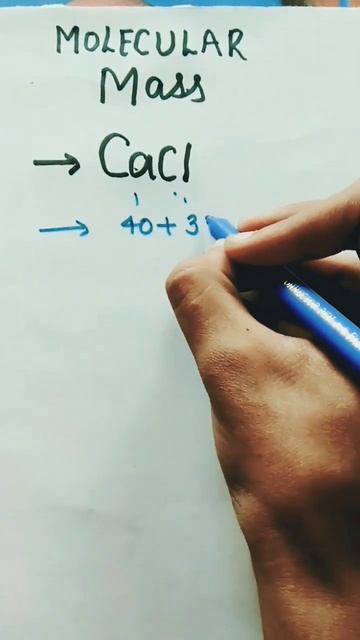 MOLECULAR
Mass
→ CaCl
→ 40+3